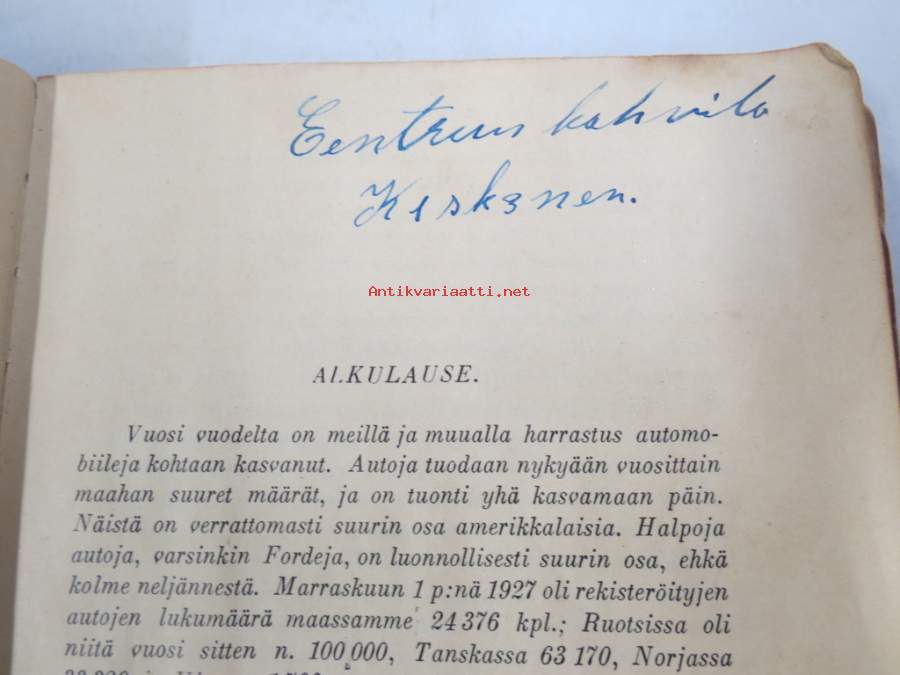 Eentrum kahvila
Keskinen.
Antikvariaatti.net
ALKULAUSE.
Vuosi vuodelta on meillä ja muualla harrastus automo-
biileja kohtaan kasvanut. Autoja tuodaan nykyään vuosittain
maahan suuret määrät, ja on tuonti yhä kasvamaan päin.
Näistä on verrattomasti suurin osa amerikkalaisia. Halpoja
autoja, varsinkin Fordeja, on luonnollisesti suurin osa, ehkä
kolme neljännestä. Marraskuun 1 p:nä 1927 oli rekisteröityjen
autojen lukumäärä maassamme 24 376 kpl.; Ruotsissa oli
niitä vuosi sitten n. 100,000, Tanskassa 63 170, Norjassa